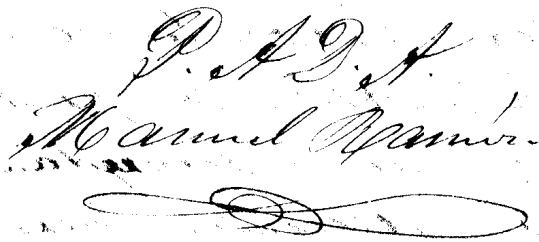 P. A D. A.
Manuel Ramón.